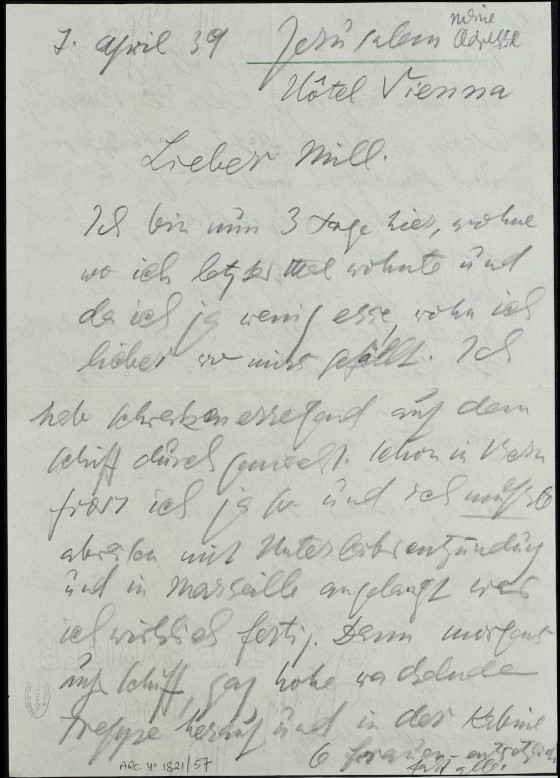 7. April 39 Jerusalem meine Adresse
Hôtel Vienna
Lieber Mill.
Ich bin nun 3 Tage hier, wohne
wo ich letztes Mal wohnte und
da ich ja wenig esse, wohn ich
lieber wo mirs gefällt. Ich
hab schreckenerregend auf dem
Schiff durch gemacht. Schon in Bern
fror ich ja so und ich mußte
abreisen mit Unterleibsentzündung
und in Marseille angelangt war
ich wirklich fertig. Dann morgens
aufs Schiff, ganz hohe wackelnde
Treppe herauf und in der Kabine
6 Frauen
fast alle
ARC. 4° 1821/57